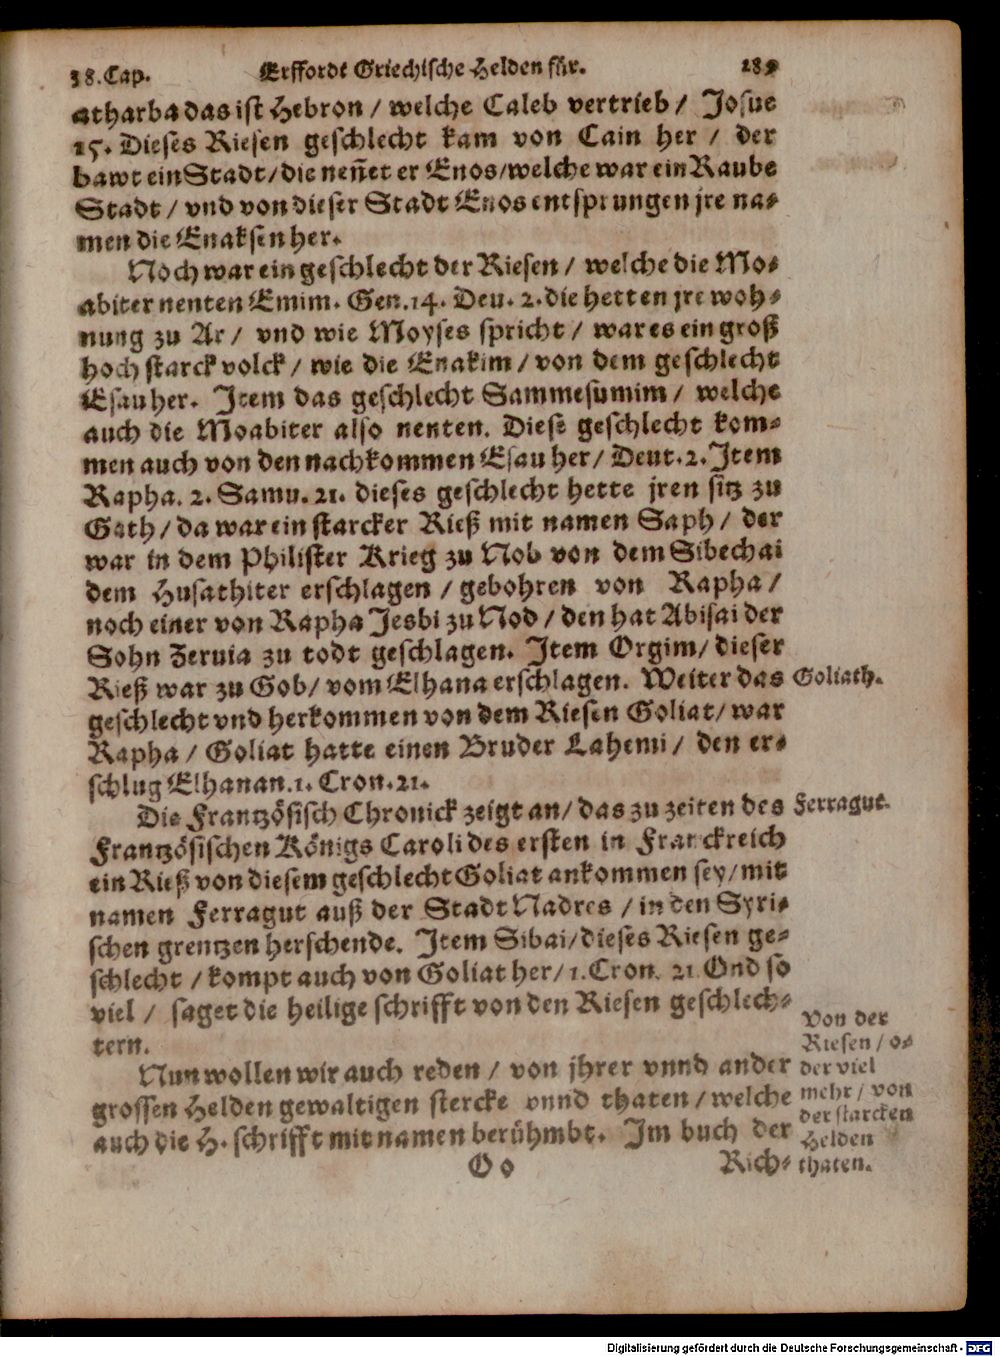 38. Cap. Erffordt Griechische Helden für. 289
atharba das ist Hebron / welche Caleb vertrieb / Josue
15. Dieses Riesen geschlecht kam von Cain her / der
bawt ein Stadt / die nen̄et er Enos / welche war ein Raube
Stadt / vnd von dieser Stadt Enos entsprungen jre na-
men die Enaksen her.
Noch war ein geschlecht der Riesen / welche die Mo-
abiter nenten Emim. Gen. 14. Deu. 2. die hetten jre woh-
nung zu Ar / vnd wie Moyses spricht / war es ein groß
hoch starck volck / wie die Enakim / von dem geschlecht
Esau her. Item das geschlecht Sammesumim / welche
auch die Moabiter also nenten. Diese geschlecht kom-
men auch von den nachkommen Esau her / Deut. 2. Item
Rapha. 2. Samu. 21. dieses geschlecht hette jren sitz zu
Gath / da war ein starcker Rieß mit namen Saph / der
war in dem Philister Krieg zu Nob von dem Sibechai
dem Husathiter erschlagen / gebohren von Rapha /
noch einer von Rapha Jesbi zu Nod / den hat Abisai der
Sohn Zeruia zu todt geschlagen. Item Orgim / dieser
Rieß war zu Gob / vom Elhana erschlagen. Weiter das
Goliath.
geschlecht vnd herkommen von dem Riesen Goliat / war
Rapha / Goliat hatte einen Bruder Lahemi / den er-
schlug Elhanan. 1. Cron. 21.
Die Frantzösisch Chronick zeigt an / das zu zeiten des
Ferragut.
Frantzösischen Königs Caroli des ersten in Franckreich
ein Rieß von diesem geschlecht Goliat ankommen sey / mit
namen Ferragut auß der Stadt Nadres / in den Syri-
schen grentzen herschende. Item Sibai / dieses Riesen ge-
schlecht / kompt auch von Goliat her / 1. Cron. 21. Vnd so
viel / saget die heilige schrifft von den Riesen geschlech-
tern.
Nun wollen wir auch reden / von jhrer vnnd ander
grossen Helden gewaltigen stercke vnnd thaten / welche
auch die H. schrifft mit namen berühmbt. Im buch der
Von der
Riesen / o-
der viel
mehr / von
der starcken
Helden
thaten.
Oo Rich-
Digitalisierung gefördert durch die Deutsche Forschungsgemeinschaft - DFG